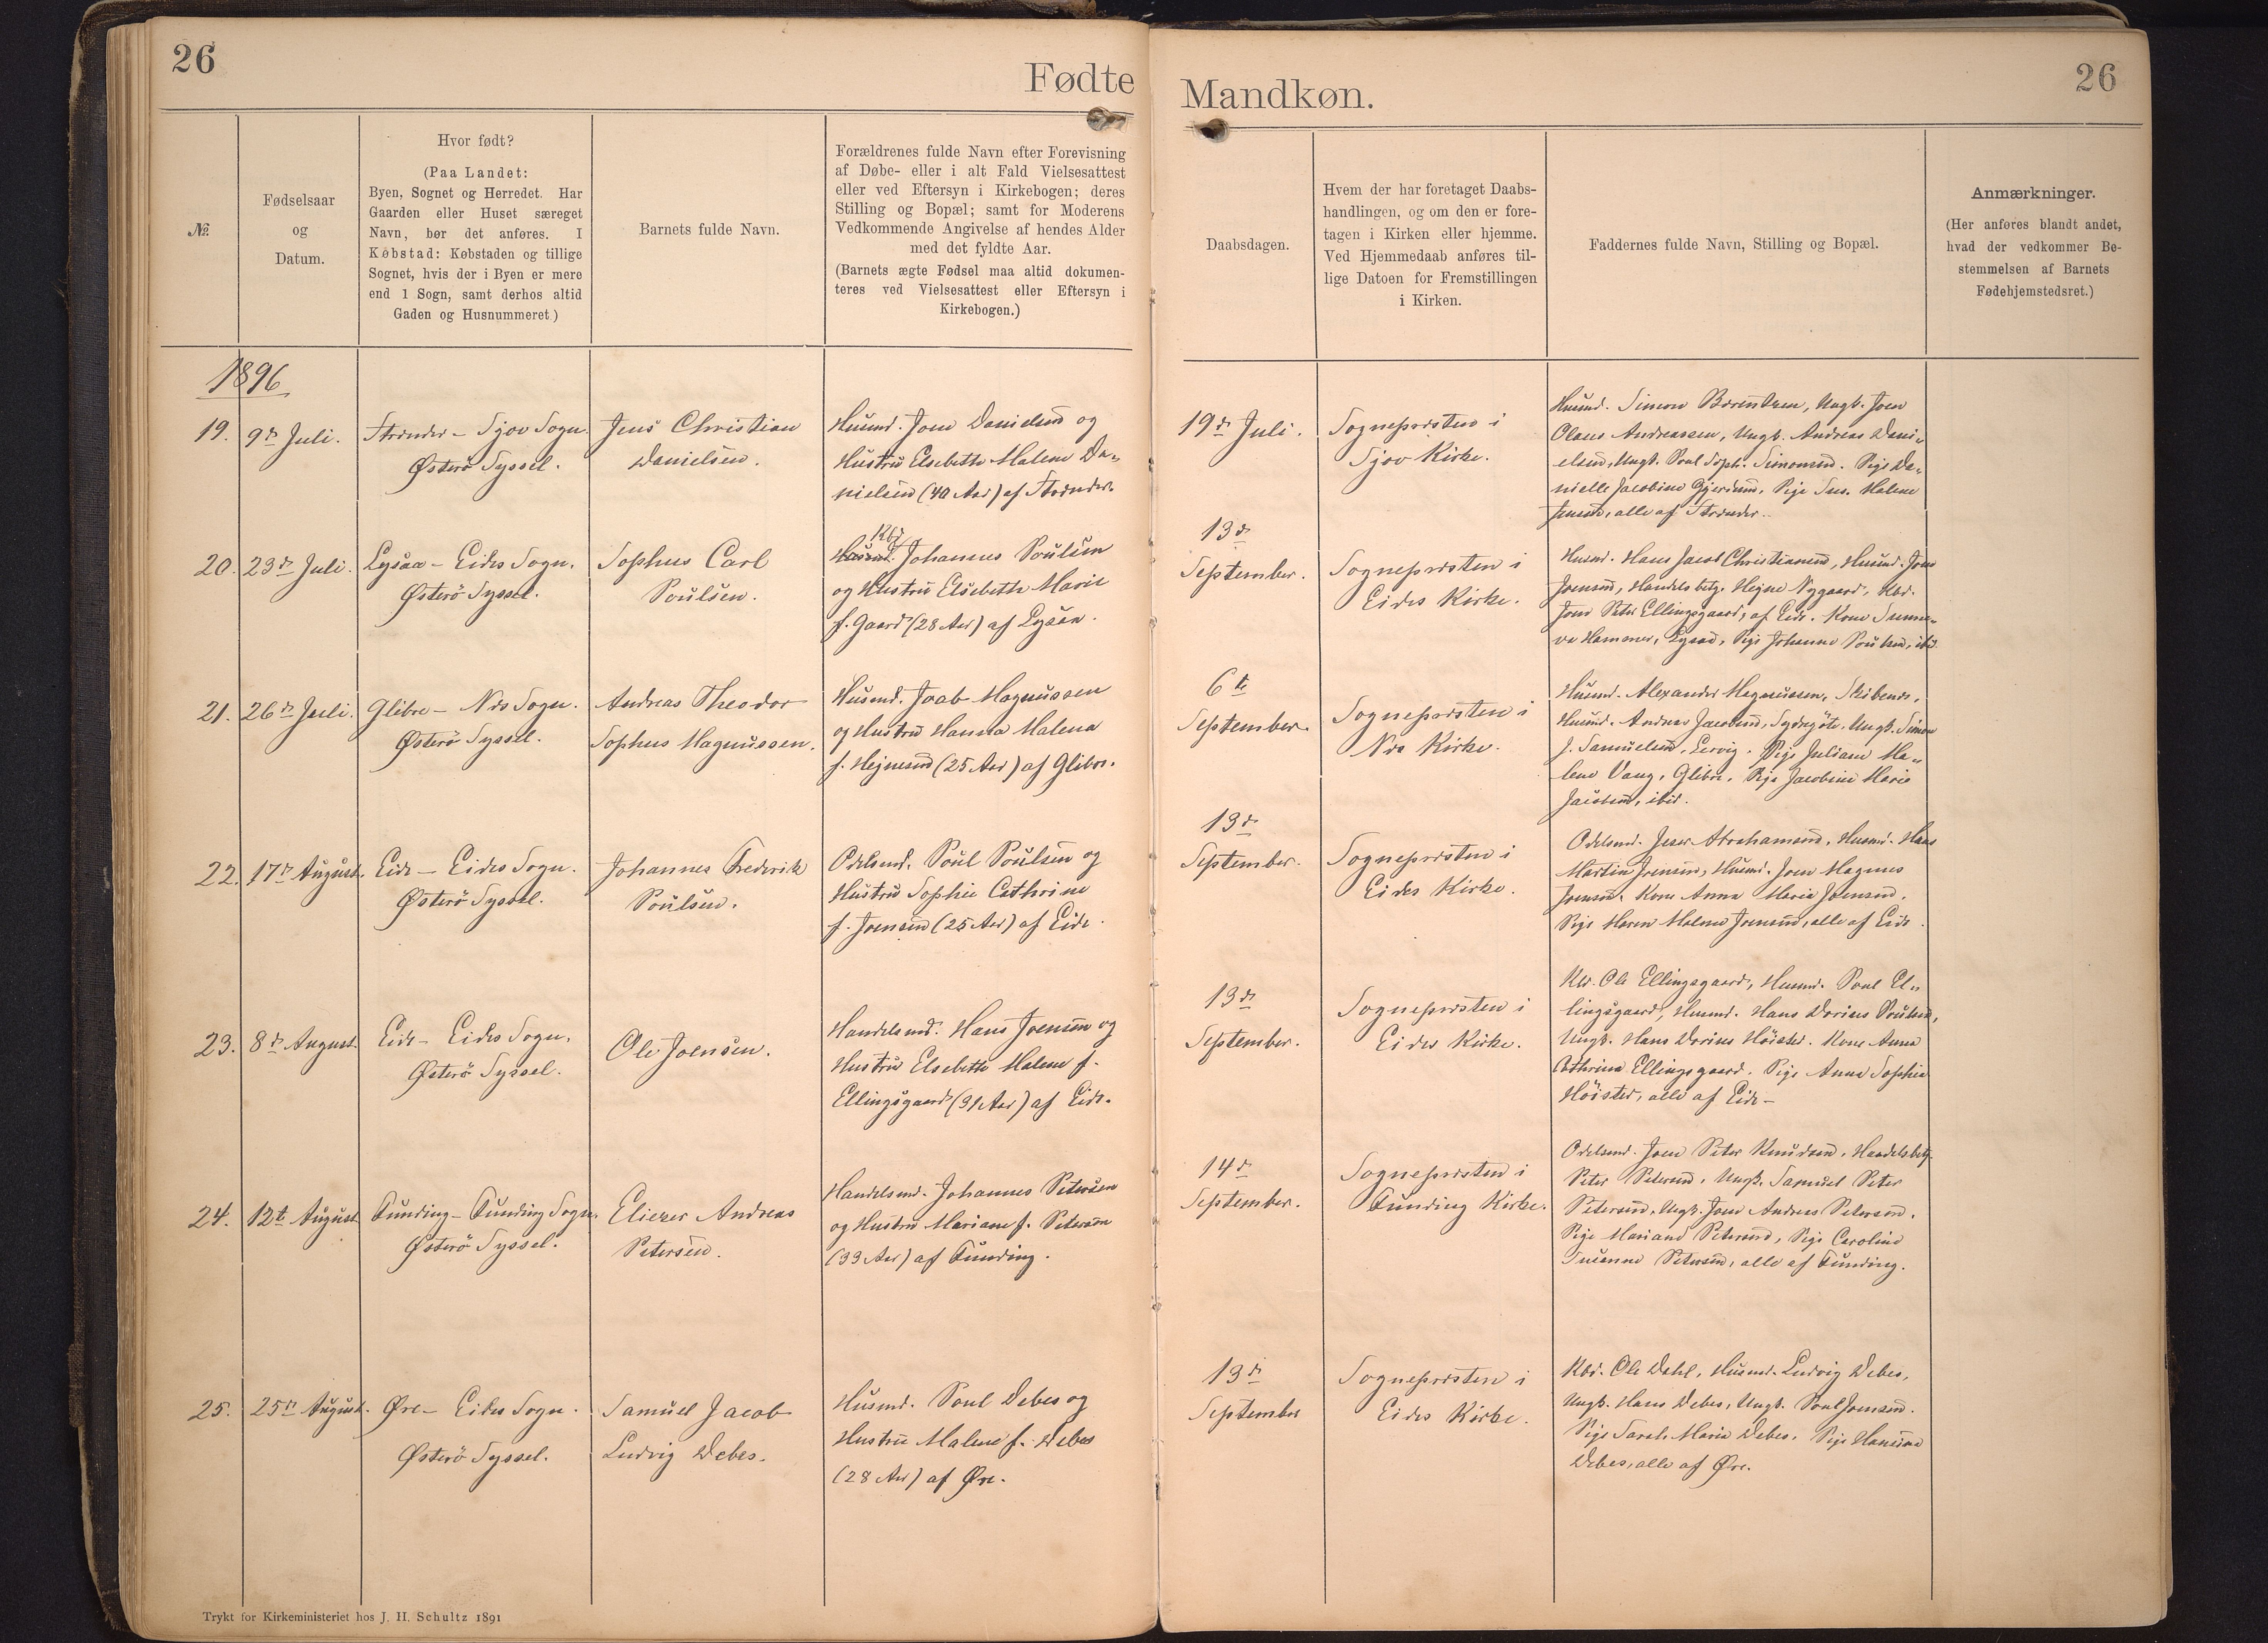 26
Fødte
Mandkøn.
26
No.
Fødselsaar
og
Datum.
Hvor født?
(Paa Landet:
Byen, Sognet og Herredet. Har
Gaarden eller Huset særeget
Navn, bør det anføres. I
Købstad: Købstaden og tillige
Sognet, hvis der i Byen er mere
end 1 Sogn, samt derhos altid
Gaden og Husnummeret.)
Barnets fulde Navn.
Forældrenes fulde Navn efter Forevisning
af Døbe- eller i alt Fald Vielsesattest
eller ved Eftersyn i Kirkebogen; deres
Stilling og Bopæl; samt for Moderens
Vedkommende Angivelse af hendes Alder
med det fyldte Aar.
(Barnets ægte Fødsel maa altid dokumen-
teres ved Vielsesattest eller Eftersyn i
Kirkebogen.)
Daabsdagen.
Hvem der har foretaget Daabs-
handlingen, og om den er fore-
tagen i Kirken eller hjemme.
Ved Hjemmedaab anføres til-
lige Datoen for Fremstillingen
i Kirken.
Faddernes fulde Navn, Stilling og Bopæl.
Anmærkninger.
(Her anføres blandt andet,
hvad der vedkommer Be-
stemmelsen af Barnets
Fødehjemstedsret.)
1896
19.
9de Juli.
Strænder - Sjov Sogn.
Østerö Syssel.
Jens Christian
Danielsen.
Husmd. Joen Danielsen og
Hustru Elsebeth Malene Da-
nielsen (40 Aar) af Strænder.
19de Juli.
Sognepræsten i
Sjov Kirke.
Husmd. Simon Berentsen, Ungk. Joen
Olaus Andreassen, Ungk. Andreas Dani-
elsen, Ungk. Poul Soph. Simonsen. Pige Da-
nielle Jacobine Gjerdum, Pige Sus. Malene
Jensen, alle af Strænder.
20.
23de Juli.
Lysaa - Eides Sogn.
Østerö Syssel.
Sophus Carl
Poulsen.
Kbf
Husmd. Johannes Poulsen
og Hustru Elsebeth Marie
f. Gaard (28 Aar) af Lysaa.
13de
September.
Sognepræsten i
Eides Kirke.
Husmd. Hans Jacob Christiansen, Husmd. Joen
Joensen, Handelsbetj. Hejne Nygaard, Kbd.
Joen Peter Ellingsgaard, af Eide. Kone Sunne-
va Hammer, Lysaa, Pige Johanne Poulsen, ibd.
21.
26de Juli.
Glibre - Næs Sogn.
Østerö Syssel.
Andreas Theodor
Sophus Magnussen.
Husmd. Joab Magnussen
og Hustru Hanna Malena
f. Hejnesen (25 Aar) af Glibre.
6te
September.
Sognepræsten i
Næs Kirke.
Husmd. Alexander Magnussen,
Husmd. Andreas Jacobsen, Sydregöte. Ungk. Simon
J. Samuelsen, Lervig. Pige Juliane Ma-
lene Vang, Glibre. Pige Jacobine Marie
Jacobsen, ibid.
22.
17de August.
Eide - Eides Sogn.
Østerö Syssel.
Johannes Frederik
Poulsen.
Odelsmd. Poul Poulsen og
Hustru Sophie Cathrine
f. Joensen (25 Aar) af Eide.
13de
September.
Sognepræsten i
Eides Kirke.
Odelsmd. Jesper Abrahamsen, Husmd. Hans
Martin Joensen, Husmd. Joen Magnus
Joensen. Kone Anna Maria Joensen.
Pige Maren Malene Joensen, alle af Eide.
23.
8de August.
Eide - Eides Sogn.
Østerö Syssel.
Ole Joensen.
Handelsmd. Hans Joensen og
Hustru Elsebeth Malene f.
Ellingsgaard (31 Aar) af Eide.
13de
September.
Sognepræsten i
Eides Kirke.
Kbd. Ole Ellingsgaard, Husmd. Poul El-
lingsgaard, Husmd. Hans Dorius Poulsen,
Ungk. Hans Dorius Höisted. Kone Anna
Cathrina Ellingsgaard. Pige Anna Sophie
Höisted, alle af Eide -
24.
12te August
Funding - Funding Sogn.
Østerö Syssel.
Eliezer Andreas
Petersen.
Handelsmd. Johannes Petersen
og Hustru Mariane f. Petersen
(33 Aar) af Funding.
14de
September.
Sognepræsten i
Funding Kirke.
Odelsmd. Joen Peter Knudsen, Handelsbetj.
Peter Petersen, Ungk. Samuel Peter
Petersen, Ungk. Joen Andreas Petersen.
Pige Mariane Petersen, Pige Caroline
Susanne Petersen, alle af Funding.
25.
25de August.
Øre - Eides Sogn.
Østerö Syssel.
Samuel Jacob
Ludvig Debes.
Husmd. Poul Debes og
Hustru Malene f. Debes
(28 Aar) af Øre.
13de
September
Sognepræsten i
Eides Kirke.
Kbd. Ole Dahl, Husmd. Ludvig Debes,
Ungk. Hans Debes, Ungk. Poul Joensen.
Pige Sarah Maria Debes. Pige Hansine
Debes, alle af Øre.
Trykt for Kirkeministeriet hos J. H. Schultz 1891